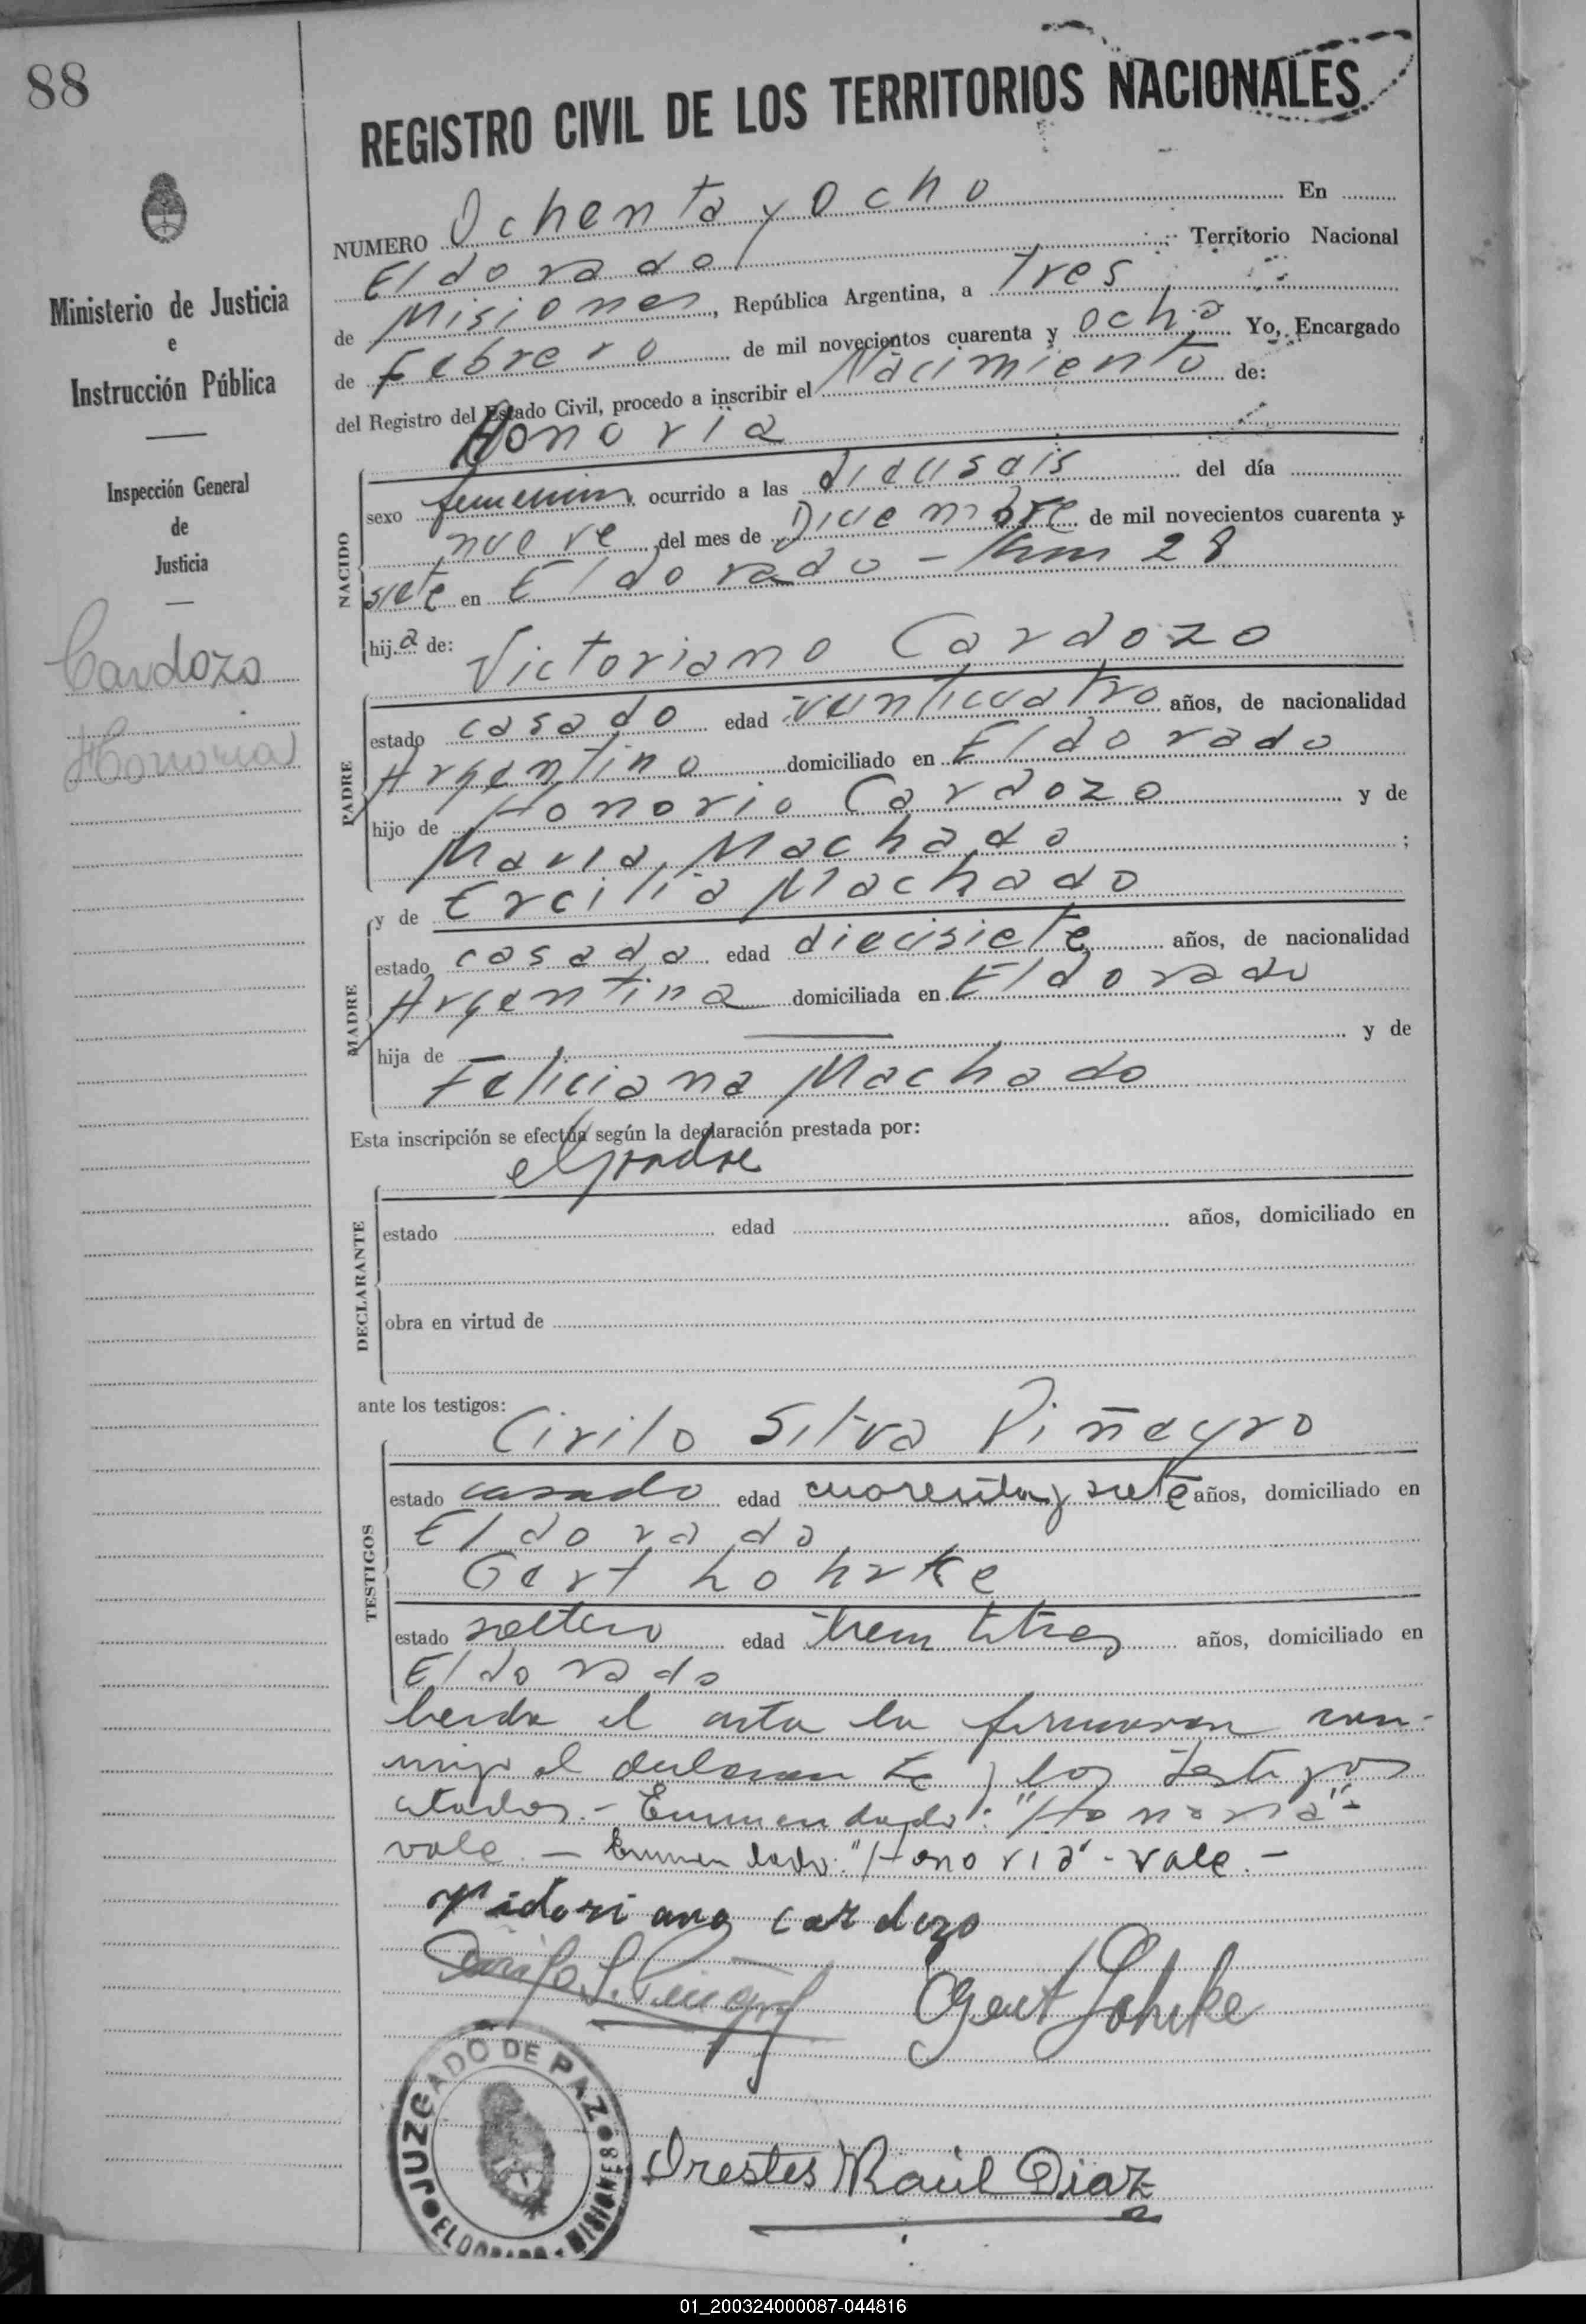 88
REGISTRO CIVIL DE LOS TERRITORIOS NACIONALES
Ministerio de Justicia
e
Instrucción Pública
Inspección General
de
Justicia
Cardozo
Honoria
NUMERO Ochenta y Ocho En
Eldorado Territorio Nacional
de Misiones, República Argentina, a tres
de Febrero de mil novecientos cuarenta y ocho Yo, Encargado
del Registro del Estado Civil, procedo a inscribir el Nacimiento de:
Honoria
NACIDO
sexo femenino, ocurrido a las dieciseis del día
nueve del mes de Diciembre de mil novecientos cuarenta y
siete en Eldorado - Km 28
hija de: Victoriano Cardozo
PADRE
estado casado edad veinticuatro años, de nacionalidad
Argentino domiciliado en Eldorado
hijo de Honorio Cardozo y de
Maria Machado ;
y de Ercilia Machado
MADRE
estado casada edad diecisiete años, de nacionalidad
Argentina domiciliada en Eldorado
hija de — y de
Feliciana Machado
Esta inscripción se efectúa según la declaración prestada por:
el padre
DECLARANTE
estado edad años, domiciliado en
obra en virtud de
ante los testigos:
Cirilo Silva Piñeyro
TESTIGOS
estado casado edad cuarenta y siete años, domiciliado en
Eldorado
Gert Lohrke
estado soltero edad treintitres años, domiciliado en
Eldorado
Leida el acta la firmaron con-
migo el declarante y los testigos
citados.- Enmendado: "Honoria"-
vale. - Enmendado: "Honoria" - vale.-
Victoriano cardozo
Cirilo S. Piñeyro
Gert Lohrke
JUZGADO DE PAZ
ELDORADO - MISIONES
Orestes Raúl Diaz
01_200324000087-044816